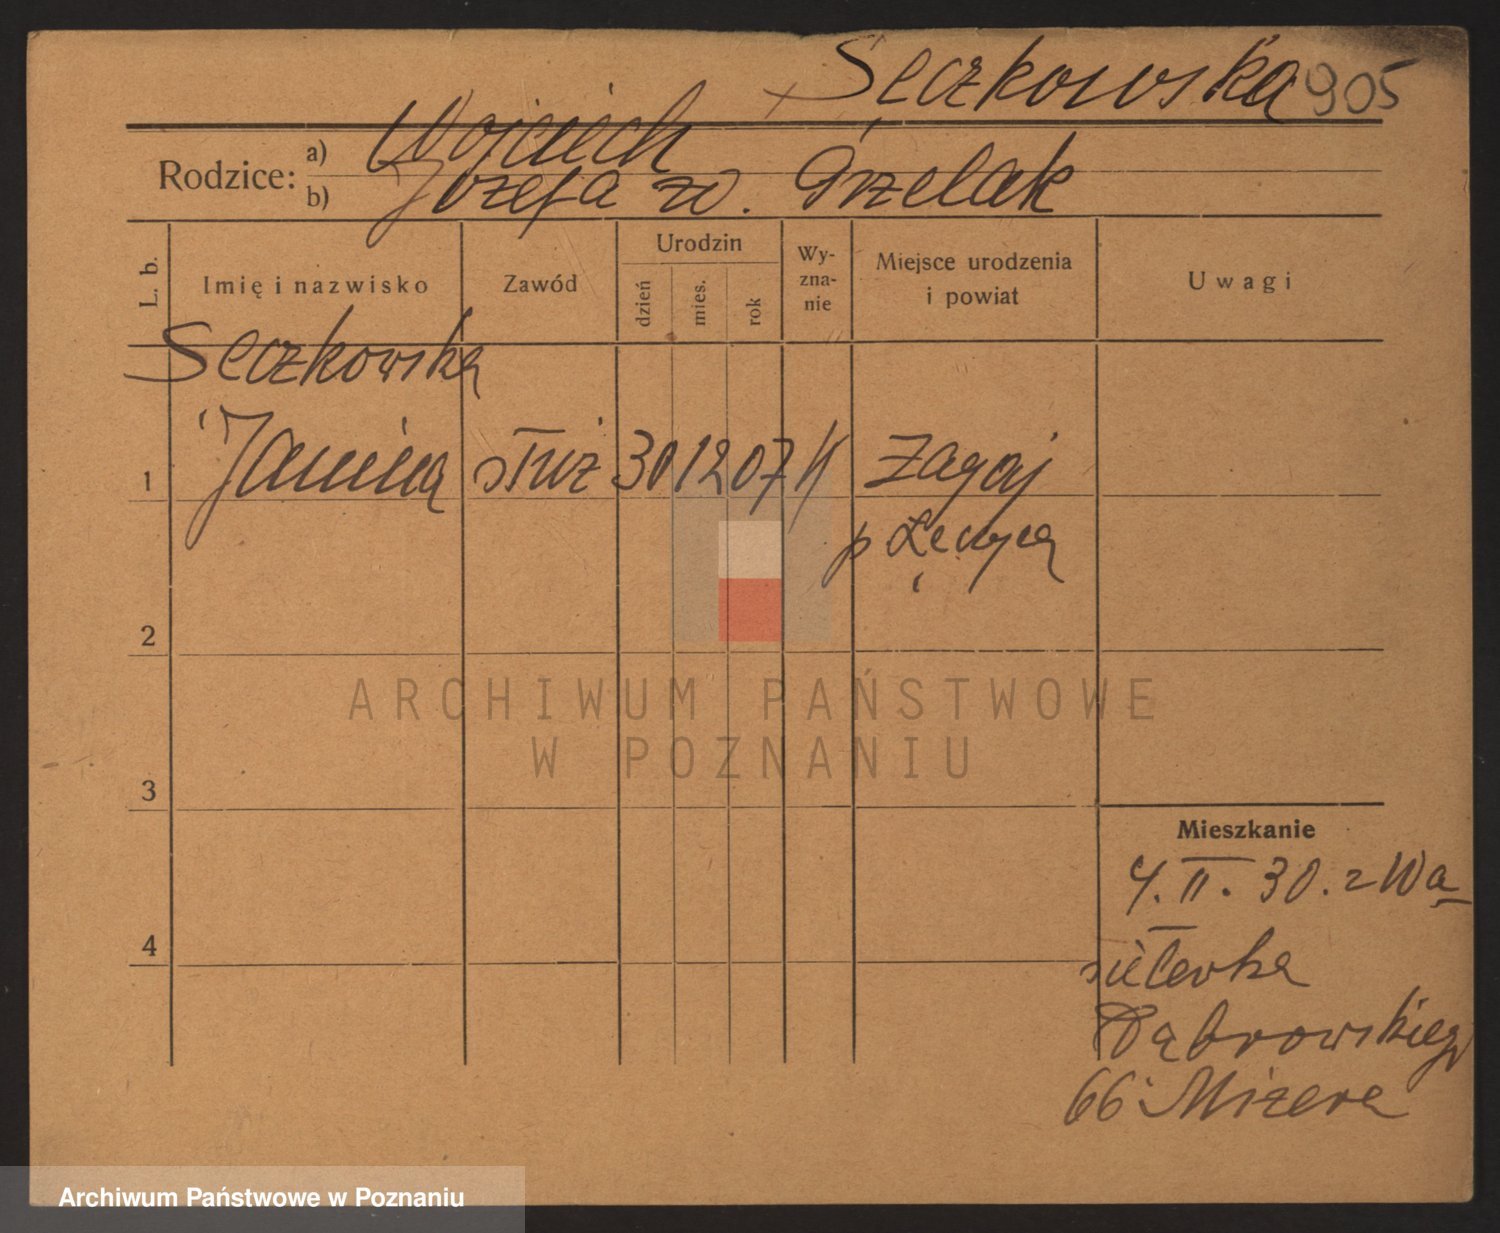 Sęczkowska 905
Rodzice: a) Wojciech
b) Józefa zd. Grzelak
L. b. Imię i nazwisko Zawód Urodzin dzień mies. rok Wy-zna-nie Miejsce urodzenia i powiat Uwagi
Seczkowska
1 Janina służ 30 12 07 Zagaj
p Łęczyca
2
3
4
Mieszkanie
4. II. 30. z Wa
Dąbrowskiego
66 Mizera
ARCHIWUM PAŃSTWOWE
W POZNANIU
Archiwum Państwowe w Poznaniu